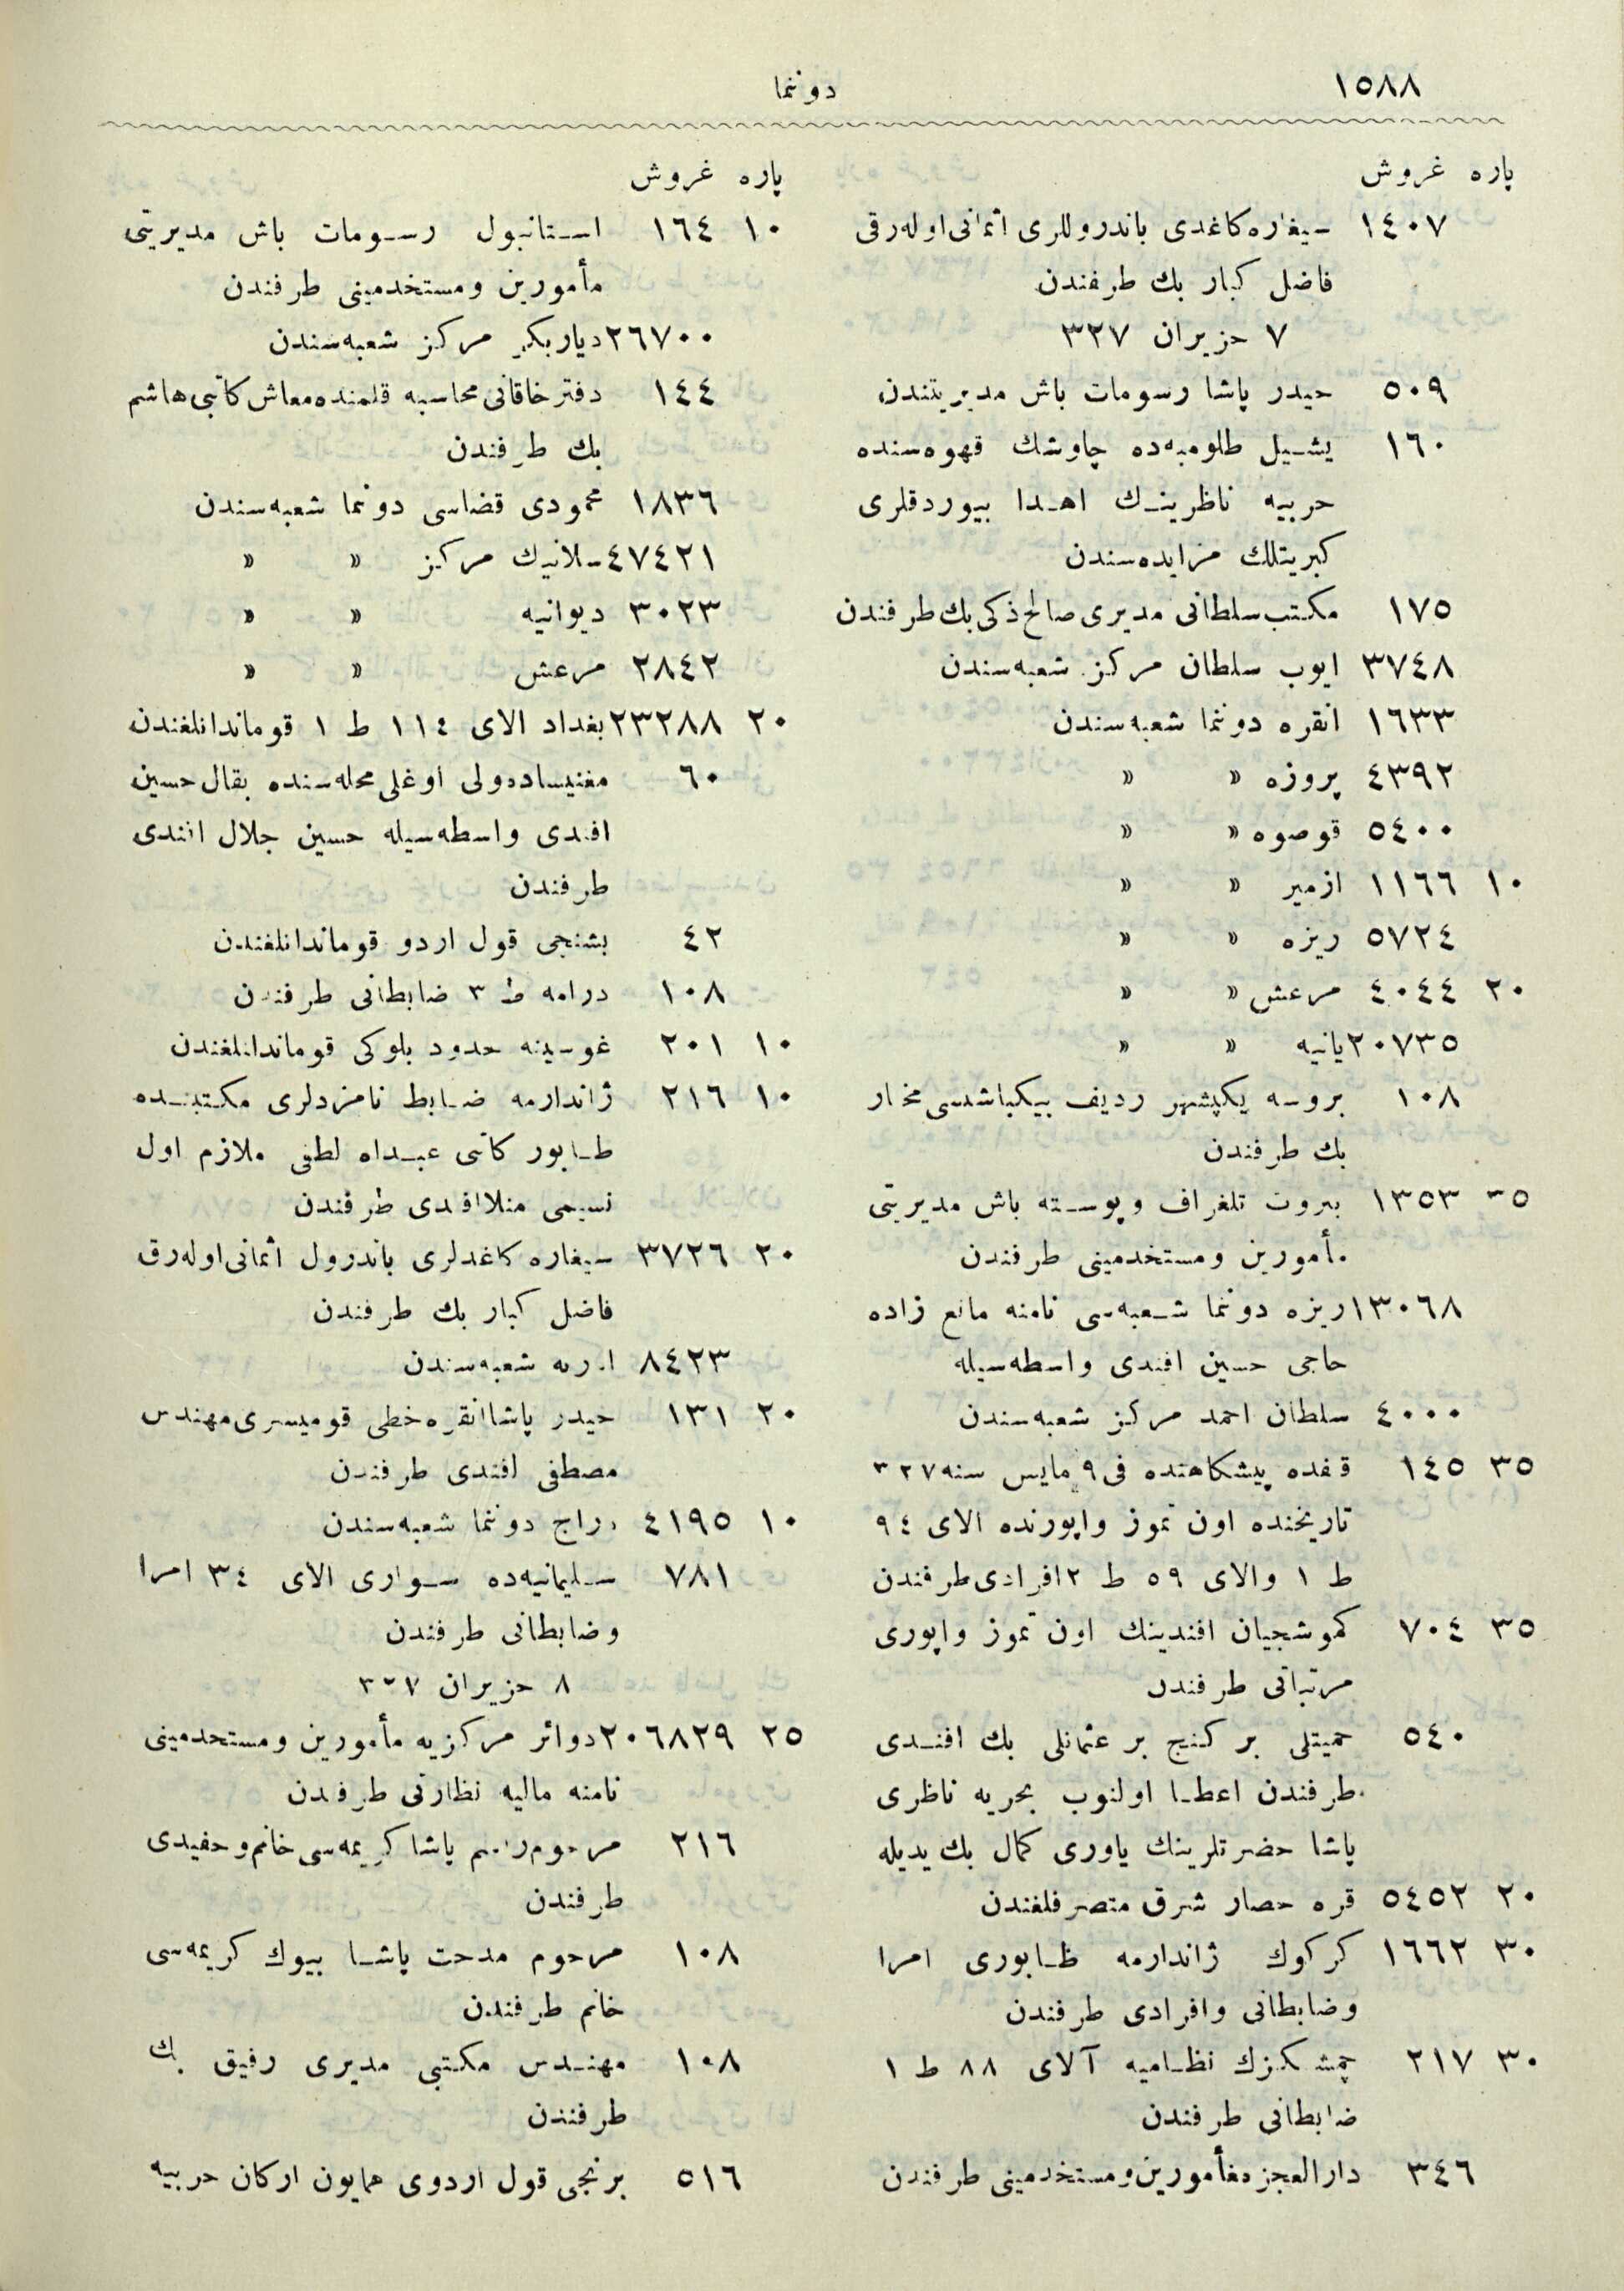 ١٥٨٨
دوننما
پاره غروش
١٤٠٧ سیغاره کاغدی باندروللری اثمانی اوله‌رق
فاضل کبار بك طرفندن
٧ حزیران ٣٢٧
٥٠٩ حیدر پاشا رسومات باش مدیریتندن
١٦٠ یشیل طلومبه‌ده چاوشك قهوه‌سنده
حربیه ناظرینك اهدا بیوردقلری
کبریتلك مزایده‌سندن
١٧٥ مکتب سلطانی مدیری صالح ذکی بك طرفندن
٣٧٤٨ ایوب سلطان مرکز شعبه‌سندن
١٦٣٣ انقره دوننما شعبه‌سندن
٤٣٩٢ پروزه » »
٥٤٠٠ قوصوه » »
١٠ ١١٦٦ ازمیر » »
٥٧٢٤ ریزه » »
٢٠ ٤٠٤٤ مرعش » »
٢٠٧٣٥ یانیه » »
١٠٨ بروسه یکیشهر ردیف بیکباشسی مختار
بك طرفندن
٣٥ ١٣٥٣ بیروت تلغراف وپوسته باش مدیریتی
مأمورین ومستخدمینی طرفندن
١٣٠٦٨ ریزه دوننما شعبه‌سی نامنه مانع زاده
حاجی حسین افندی واسطه‌سیله
٤٠٠٠ سلطان احمد مرکز شعبه‌سندن
٣٥ ١٤٥ قفده پیشکاهنده فی ٩ مایس سنه ٣٢٧
تاریخنده اون تموز واپورنده الای ٩٤
ط ١ والای ٥٩ ط ٢ افرادی طرفندن
٣٥ ٧٠٤ کموشجیان افندینك اون تموز واپوری
مرتباتی طرفندن
٥٤٠ حمیتلی بر کنج بر عثمانلی بك افندی
طرفندن اعطا اولنوب بحریه ناظری
پاشا حضرتلرینك یاوری کمال بك یدیله
٢٠ ٥٤٥٢ قره حصار شرقی متصرفلغندن
٣٠ ١٦٦٢ کرکوك ژاندارمه طابوری امرا
وضابطانی وافرادی طرفندن
٣٠ ٢١٧ چمشکزك نظامیه آلای ٨٨ ط ١
ضابطانی طرفندن
٣٤٦ دارالعجزه مأمورین ومستخدمینی طرفندن
پاره غروش
١٠ ١٦٤ استانبول رسومات باش مدیریتی
مأمورین ومستخدمینی طرفندن
٢٦٧٠٠ دیاربکر مرکز شعبه‌سندن
١٤٤ دفتر خاقانی محاسبه قلمنده معاش کاتبی هاشم
بك طرفندن
١٨٣٦ محمودی قضاسی دوننما شعبه‌سندن
٤٧٤٢١ سلانیك مرکز » »
٣٠٢٣ دیوانیه » »
٢٨٤٢ مرعش » »
٢٠ ٢٣٢٨٨ بغداد الای ١١٤ ط ١ قوماندانلغندن
٦٠ مغنیساده ولی اوغلی محله‌سنده بقال حسین
افندی واسطه‌سیله حسین جلال افندی
طرفندن
٤٢ بشنجی قول اردو قوماندانلغندن
١٠٨ درامه ط ٣ ضابطانی طرفندن
١٠ ٢٠١ غوسینه حدود بلوکی قوماندانلغندن
١٠ ٢١٦ ژاندارمه ضابط نامزدلری مکتبنده
طابور کاتبی عبداه لطفی ملازم اول
نسیمی منلا افندی طرفندن
٢٠ ٣٧٢٦ سیغاره کاغدلری باندرول اثمانی اوله‌رق
فاضل کبار بك طرفندن
٨٤٢٣ ادرنه شعبه‌سندن
٢٠ ١٣١ حیدر پاشا انقره خطی قومیسری مهندس
مصطفی افندی طرفندن
١٠ ٤١٩٥ دراج دوننما شعبه‌سندن
٧٨١ سلیمانیه‌ده سواری الای ٣٤ امرا
وضابطانی طرفندن
٨ حزیران ٣٢٧
٢٥ ٢٠٦٨٢٩ دوائر مرکزیه مأمورین ومستخدمینی
نامنه مالیه نظارتی طرفندن
٢١٦ مرحوم راسم پاشا کریمه‌سی خانم وحفیدی
طرفندن
١٠٨ مرحوم مدحت پاشا بیوك کریمه‌سی
خانم طرفندن
١٠٨ مهندس مکتبی مدیری رفیق بك
طرفندن
٥١٦ برنجی قول اردوی همایون ارکان حربیه